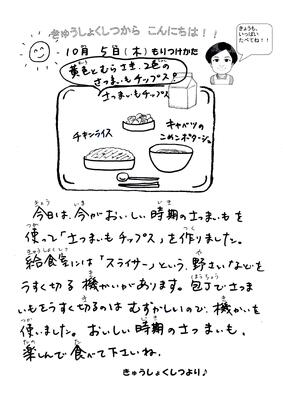 きゅうしょくしつから　こんにちは！！
きょうも、
いっぱい
たべてね！！
10月　5日（木）もりつけかた
黄色とむらさき、2色の
さつまいもチップス！
さつまいもチップス
チキンライス
キャベツの
こめこポタージュ
今日は、今がおいしい時期のさつまいもを
使って「さつまいもチップス」を作りました。
給食室には「スライサー」という、野さいなどを
うすく切る機かいがあります。包丁でさつま
いもをうすく切るのはむずかしいので、機かいを
使いました。おいしい時期のさつまいも、
楽しんで食べて下さいね。
きゅうしょくしつより♪